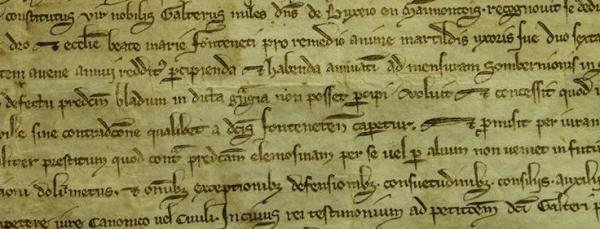 constitutus vir nobilis Galterus miles dns de
deo et ecclie beate marie fonteneti pro remedio anime martildis uxoris sue duo sexta
avene annui redditus percipienda et habenda annuatim ad mensuram Sombernionis in
defectu predcm bladum in dicta grangia non posset percipi voluit et concessit quod
sine contradcone qualibet a dcis fontenetenser caperetur et promisit per iuram
prestitum quod contra predcam elemosinam per se vel per alium non veniet in futur
doli metus et omnibz exceptionibz defensionibz consuetudinibz consiliis auxiliis
petere iure Canonico vel Civili In cuius rei testimonium ad peticoem dci Galteri